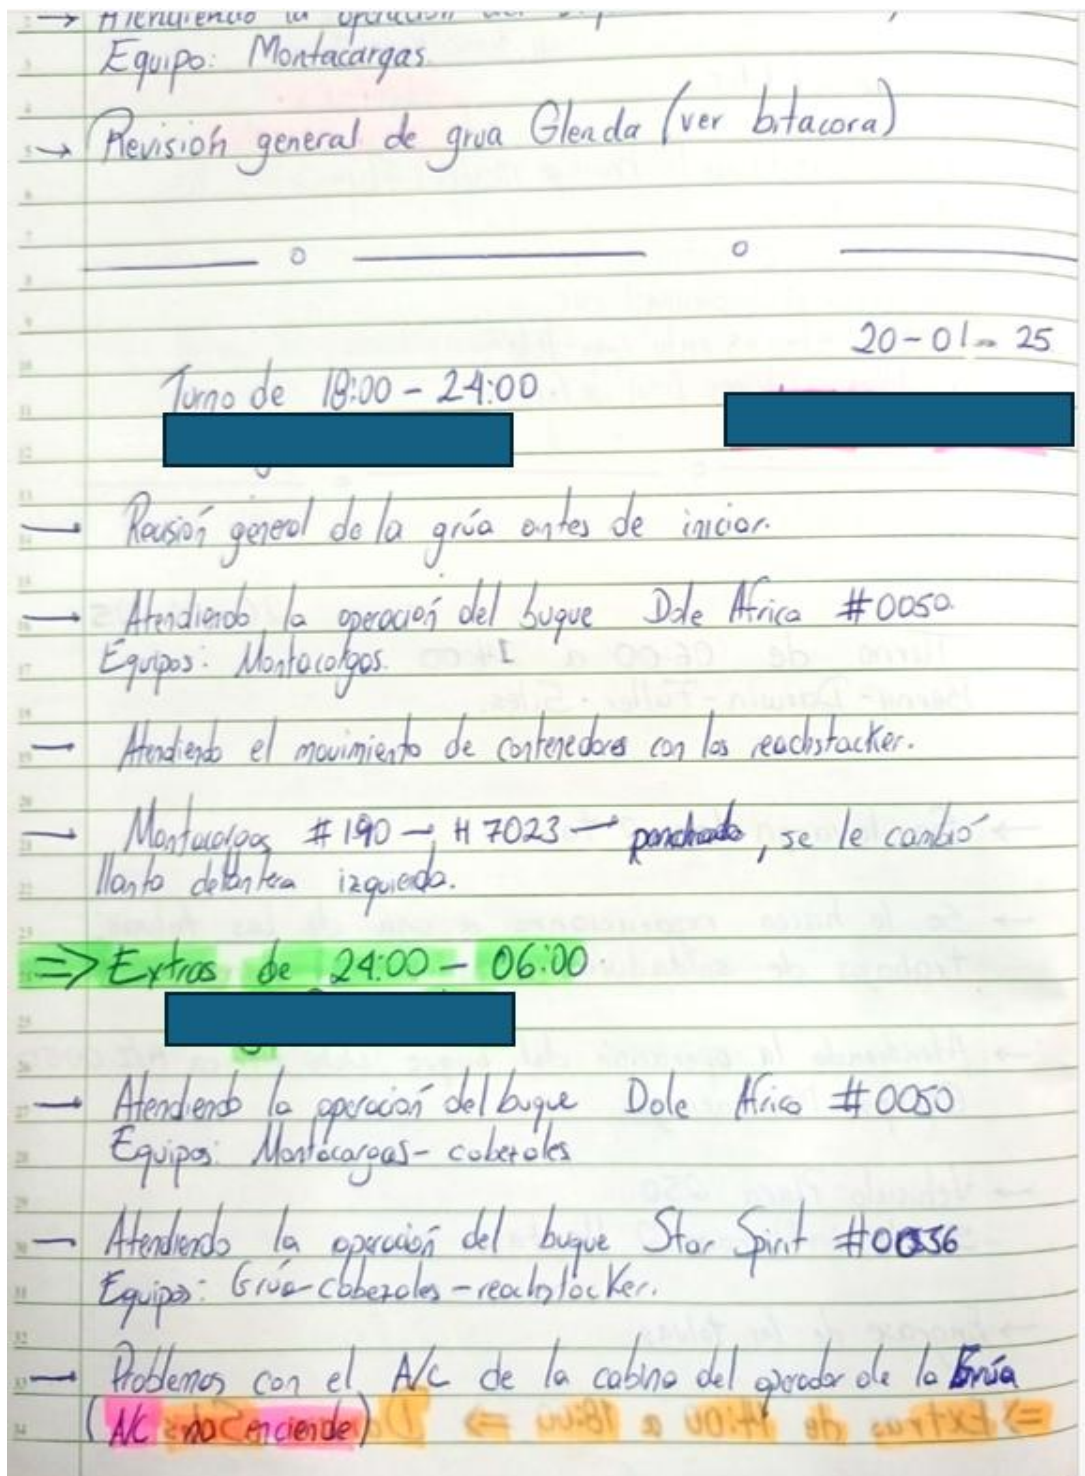 → Atendiendo la operación del
Equipo: Montacargas
→ Revisión general de grua Glenda (ver bitacora)
20-01-25
Turno de 18:00 - 24:00
— Revisión general de la grúa antes de iniciar.
— Atendiendo la operación del buque Dole Africa #0050.
Equipos: Montacargas.
— Atendiendo el movimiento de contenedores con los reachstacker.
— Montacargas #190 → H7023 → ponchado, se le cambió
llanta delantera izquierda.
=> Extras de 24:00 - 06:00.
— Atendiendo la operación del buque Dole Africa #0050
Equipos: Montacargas - cabezales
— Atendiendo la operación del buque Star Spirit #0036
Equipos: Grúa - cabezales - reachstacker.
— Problemas con el A/C de la cabina del operador de la Grúa
(A/C no enciende)